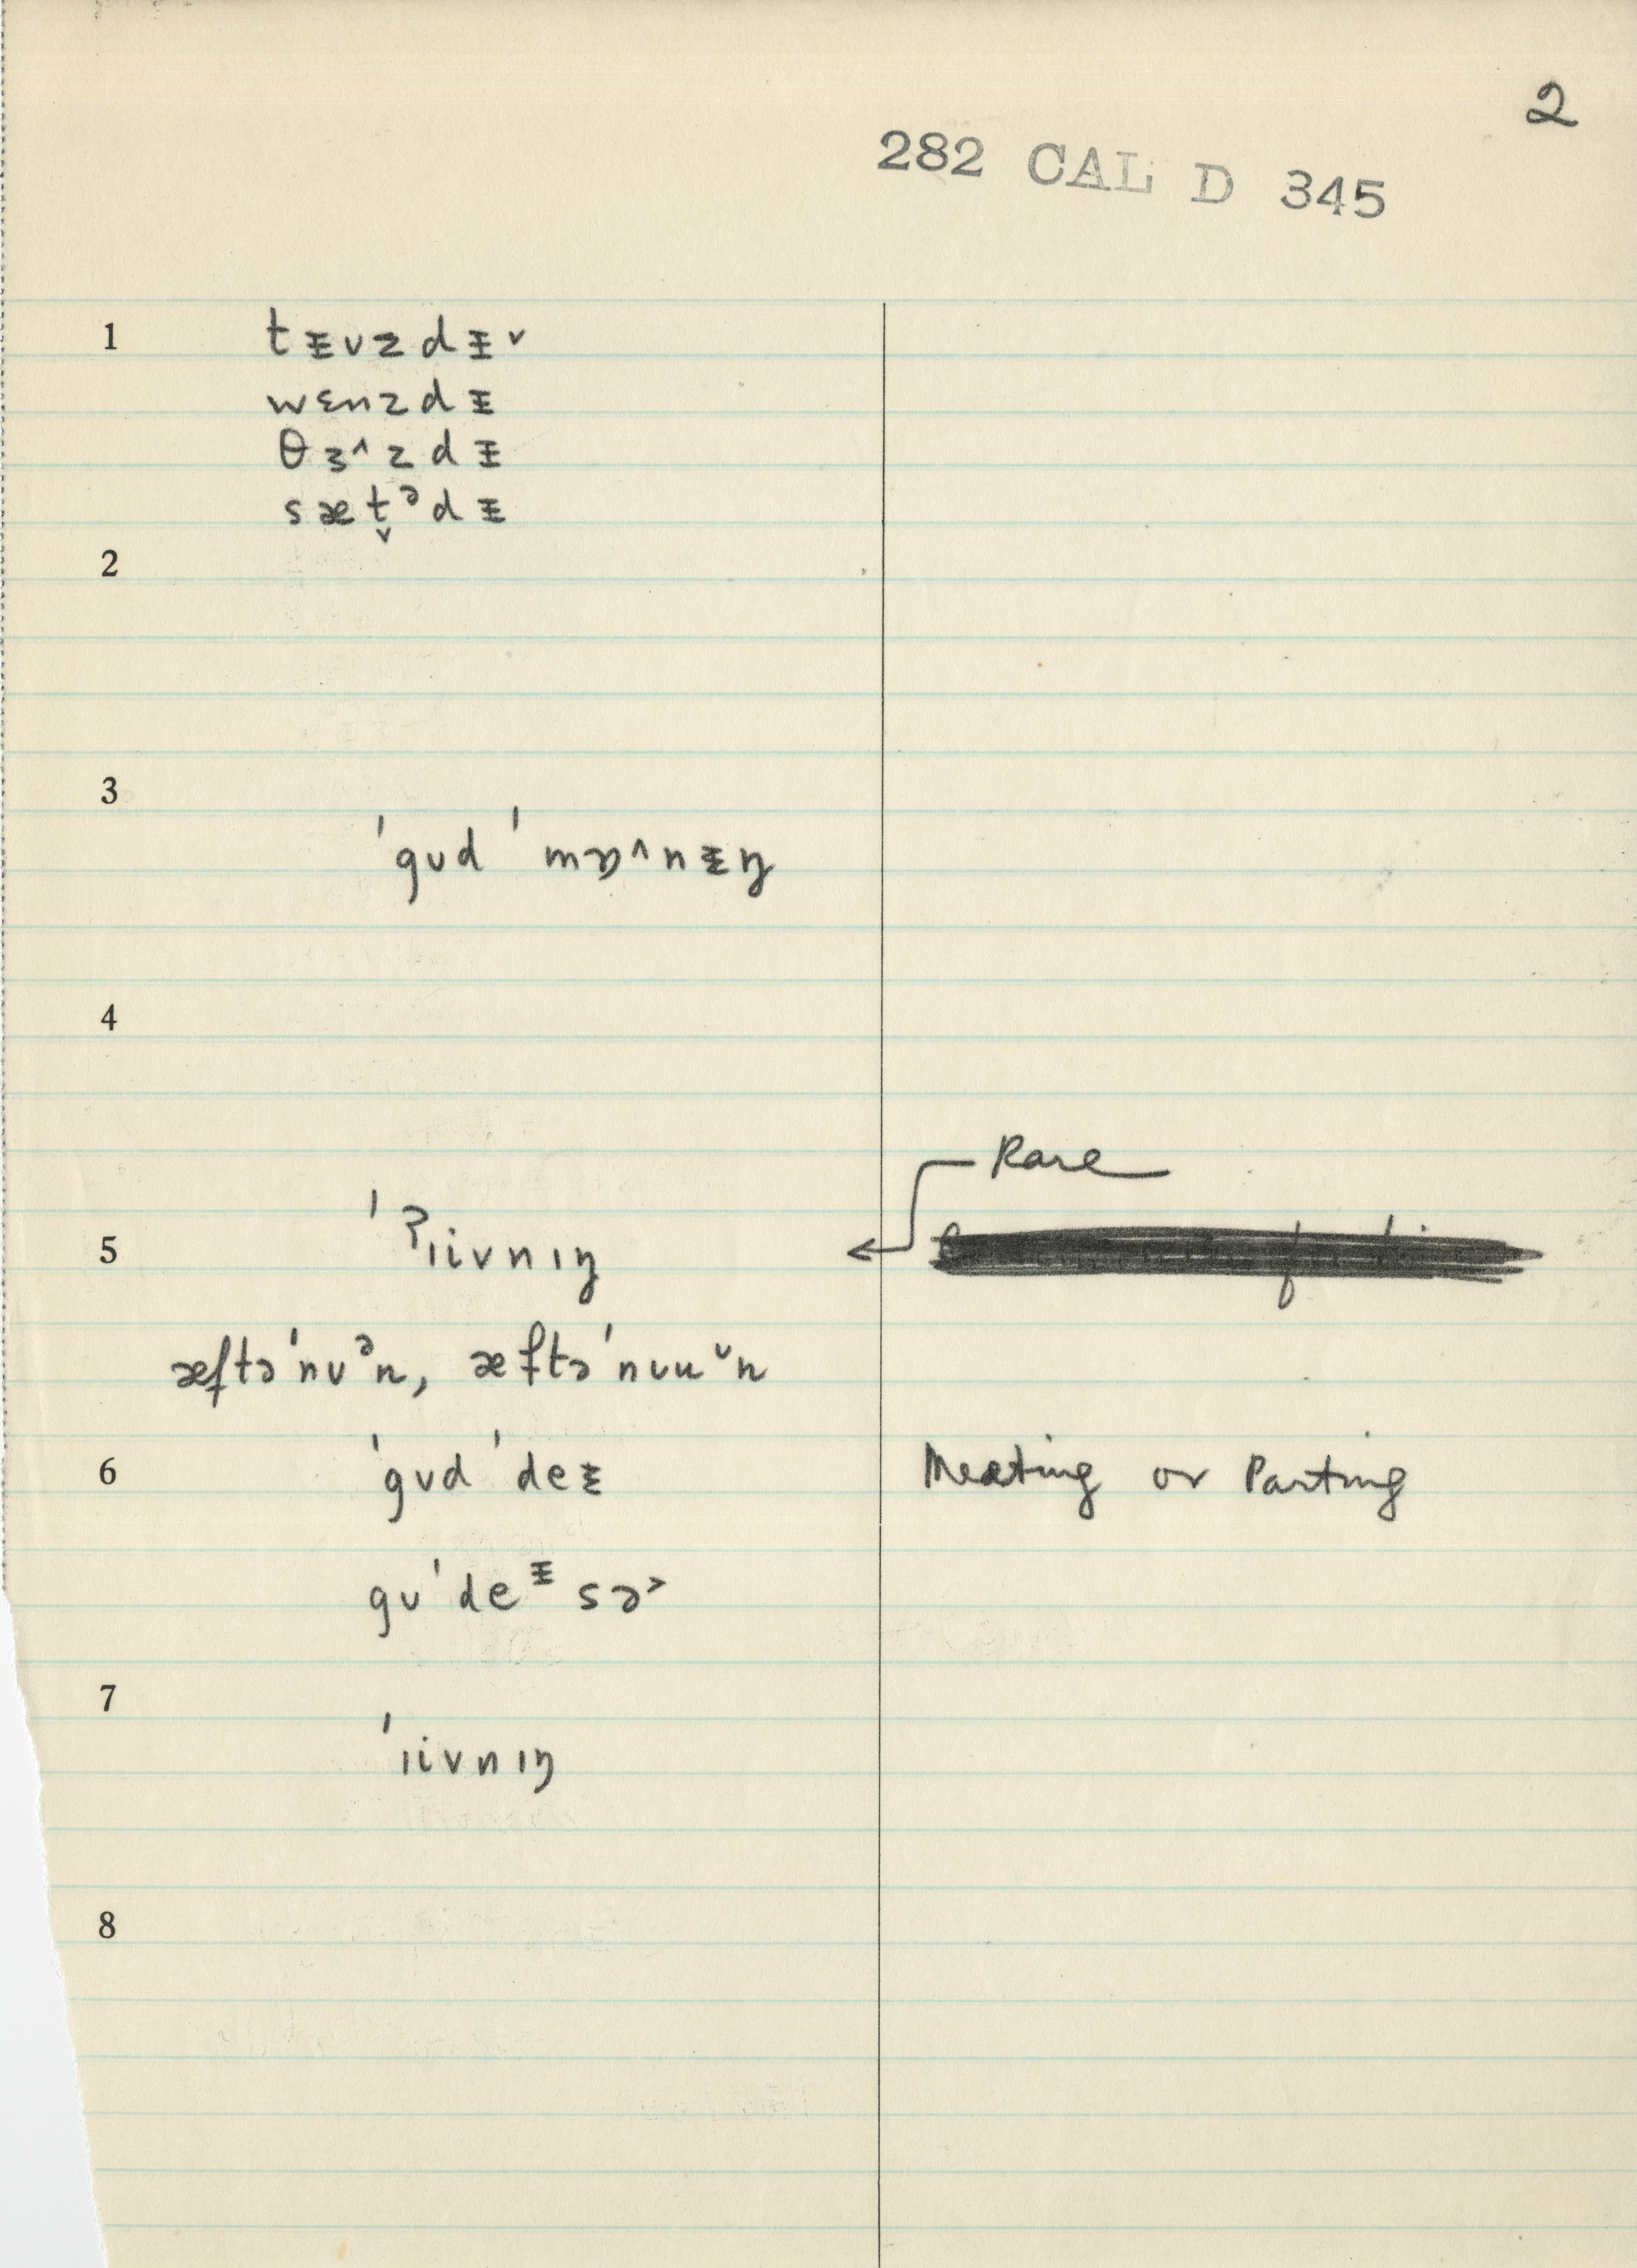 2
282 CAL D 345
1 tᵻʊzdᵻ˅
wɛnzdᵻ
θɜ˄zdᵻ
sæt̬ᵊdᵻ
2
3
ˈgʊd ˈmɒ˄nᵻŋ
4
Rare
5 ˈˀɪivnɪŋ
æftəˈnʊᵊn, æftəˈnʊu˅n
6 ˈgʊd ˈdeᵻ Meeting or Parting
gʊˈdeᵻ sə˃
7
ˈɪivnɪŋ
8